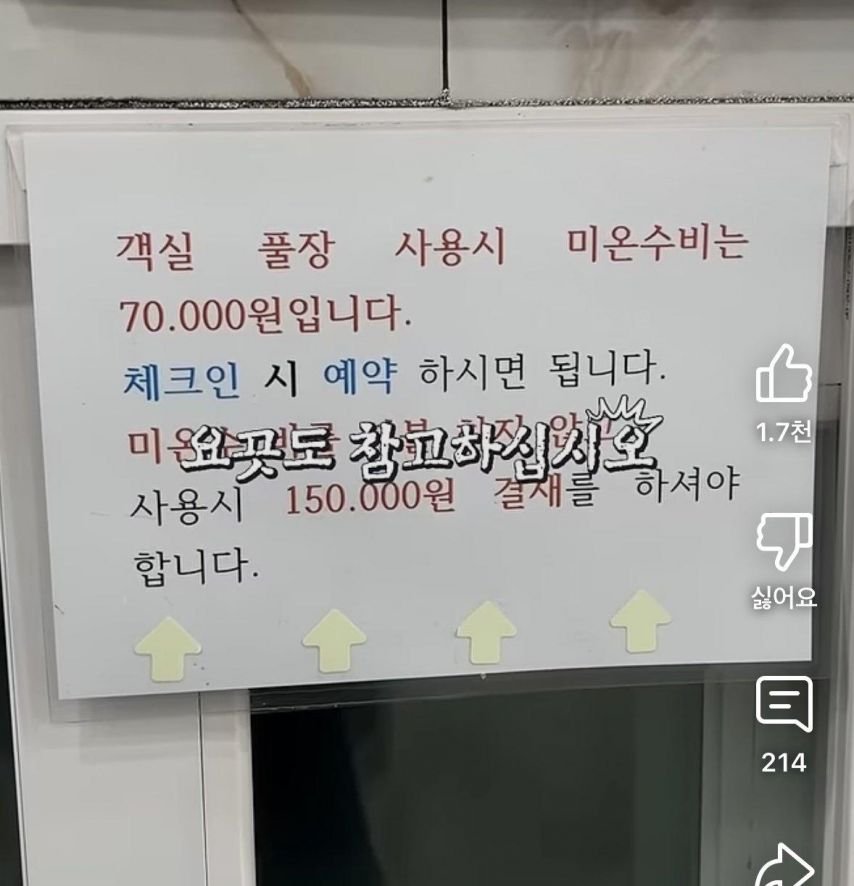 객실 풀장 사용시 미온수비는
70.000원입니다.
체크인 시 예약 하시면 됩니다.
요끗도 참고하십시오
사용시 150.000원 결재를 하셔야
합니다.
1.7천
싫어요
214